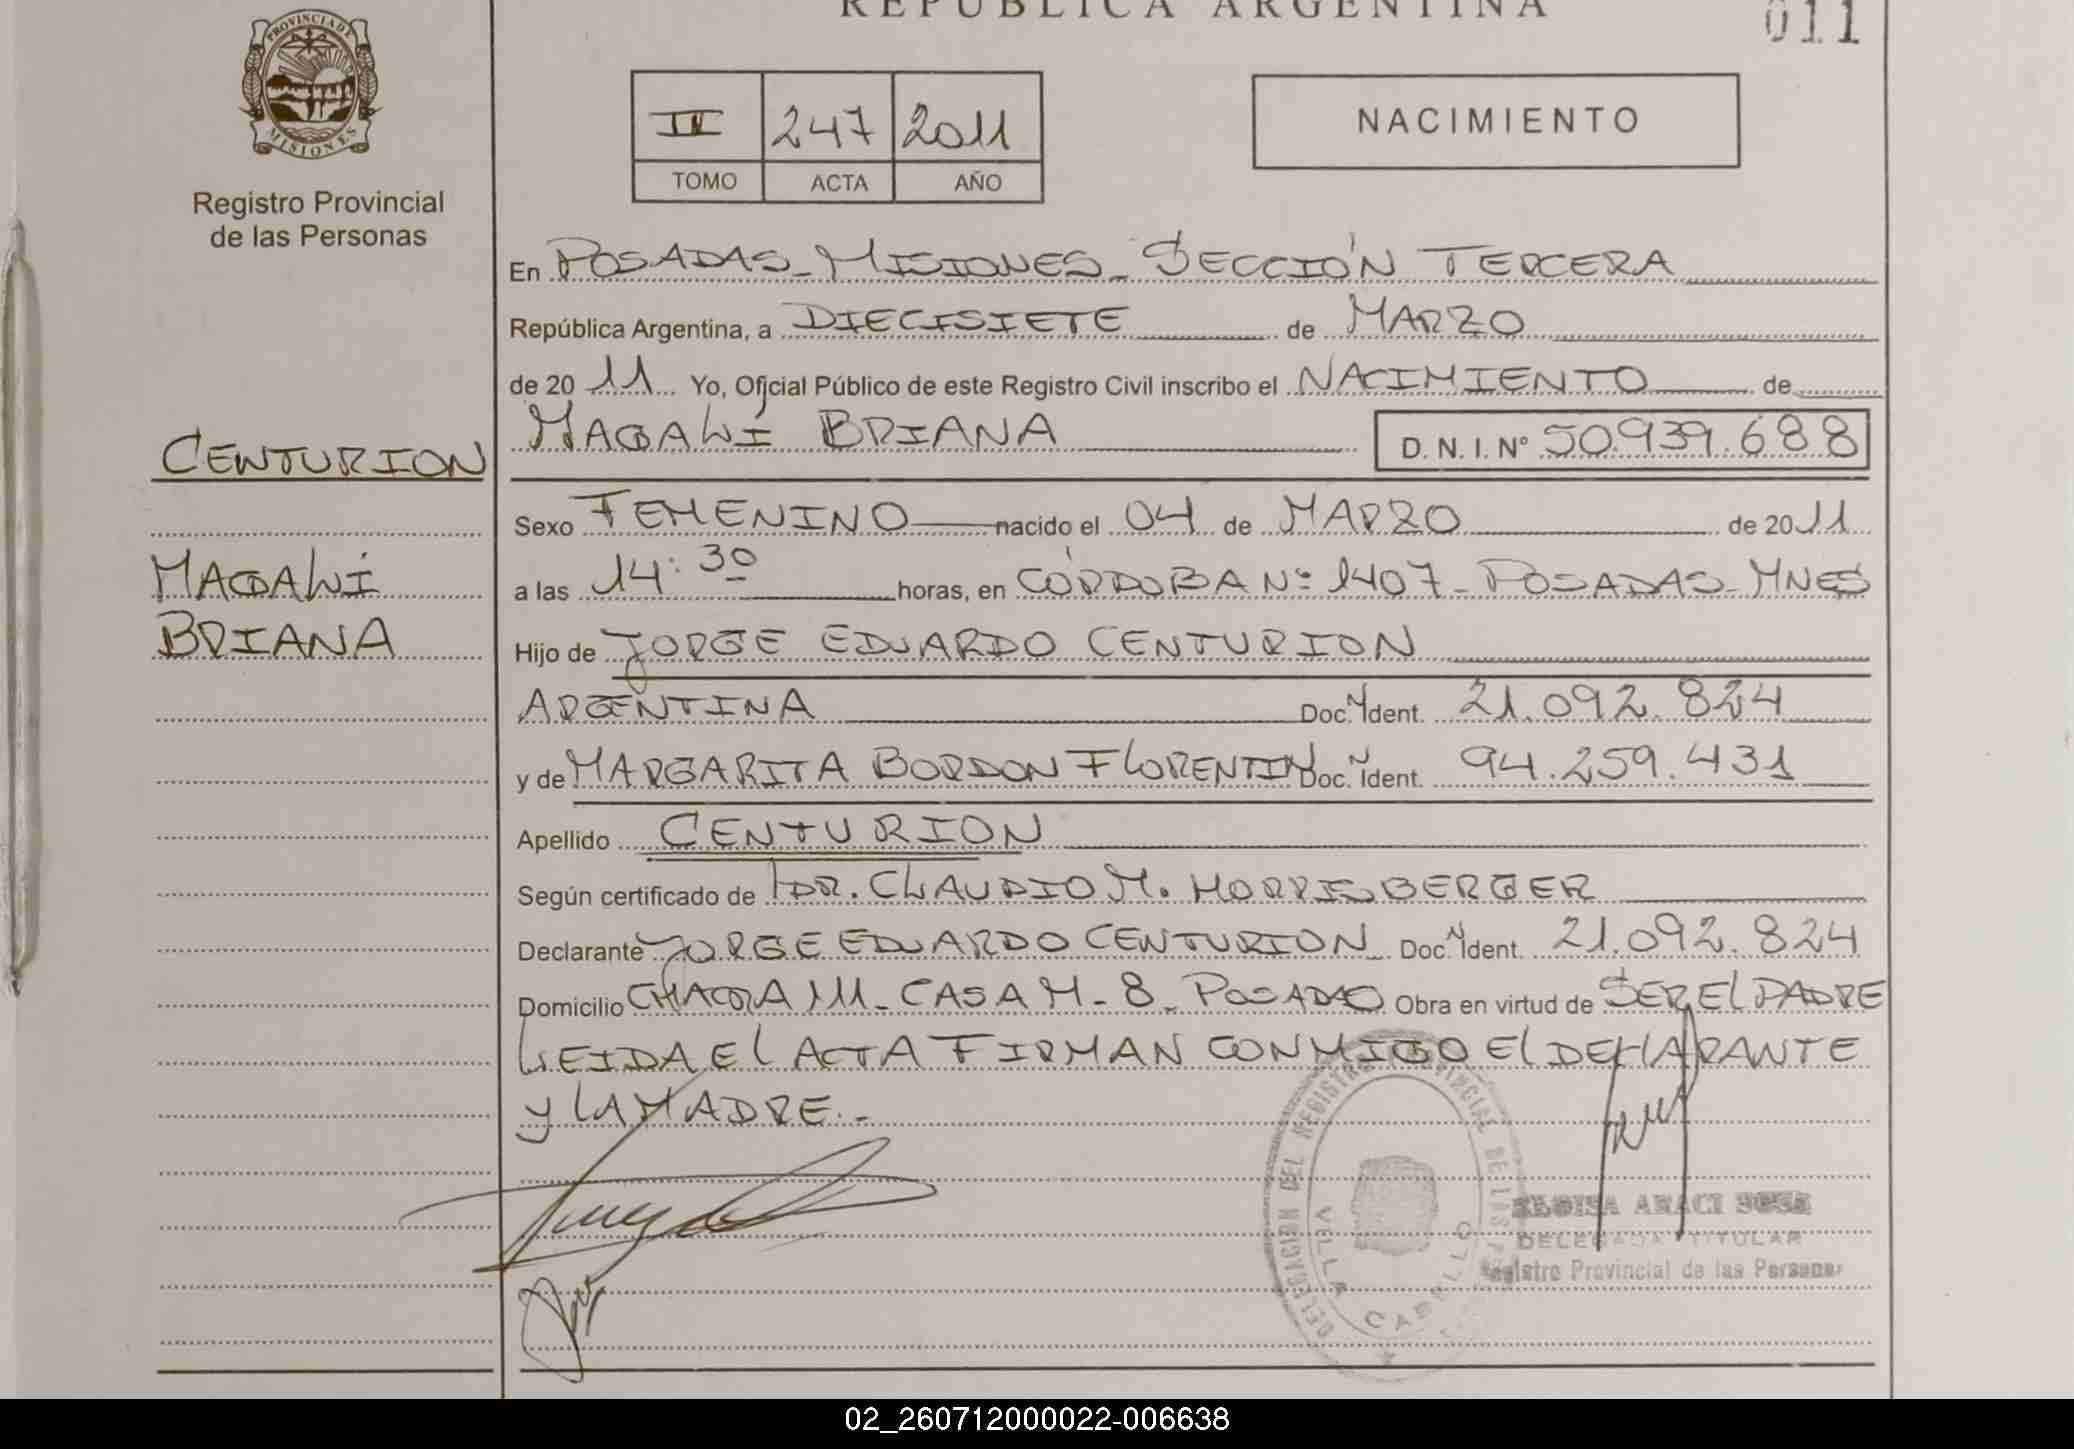 REPUBLICA ARGENTINA
011
PROVINCIA DE
MISIONES
Registro Provincial
de las Personas
247 2011
TOMO ACTA AÑO
NACIMIENTO
En POSADAS - MISIONES - SECCIÓN TERCERA
República Argentina, a DIECISIETE de MARZO
de 20 11 Yo, Oficial Público de este Registro Civil inscribo el NACIMIENTO de
MAGALÍ BRIANA D. N. I. Nº 50.939.688
CENTURION
MAGALÍ
BRIANA
Sexo FEMENINO nacido el 04 de MARZO de 2011
a las 14:30 horas, en CÓRDOBA Nº 1407 - POSADAS - MNES
Hijo de JORGE EDUARDO CENTURION
ARGENTINA Doc. N Ident. 21.092.824
y de MARGARITA BORDON FLORENTIN Doc. N Ident. 94.259.431
Apellido CENTURION
Según certificado de DR. CLAUDIO M. MORRISBERGER
Declarante JORGE EDUARDO CENTURION Doc. N Ident. 21.092.824
Domicilio CHACRA 111 - CASA M - 8 - POSADAS Obra en virtud de SER EL PADRE
LEIDA EL ACTA FIRMAN CONMIGO EL DECLARANTE
Y LA MADRE.-
DELEGACION DEL REGISTRO PROVINCIAL DE LAS
VILLA CABELLO
ELOISA ARACI SOSA
DELEGADA TITULAR
Registro Provincial de las Personas
02_260712000022-006638